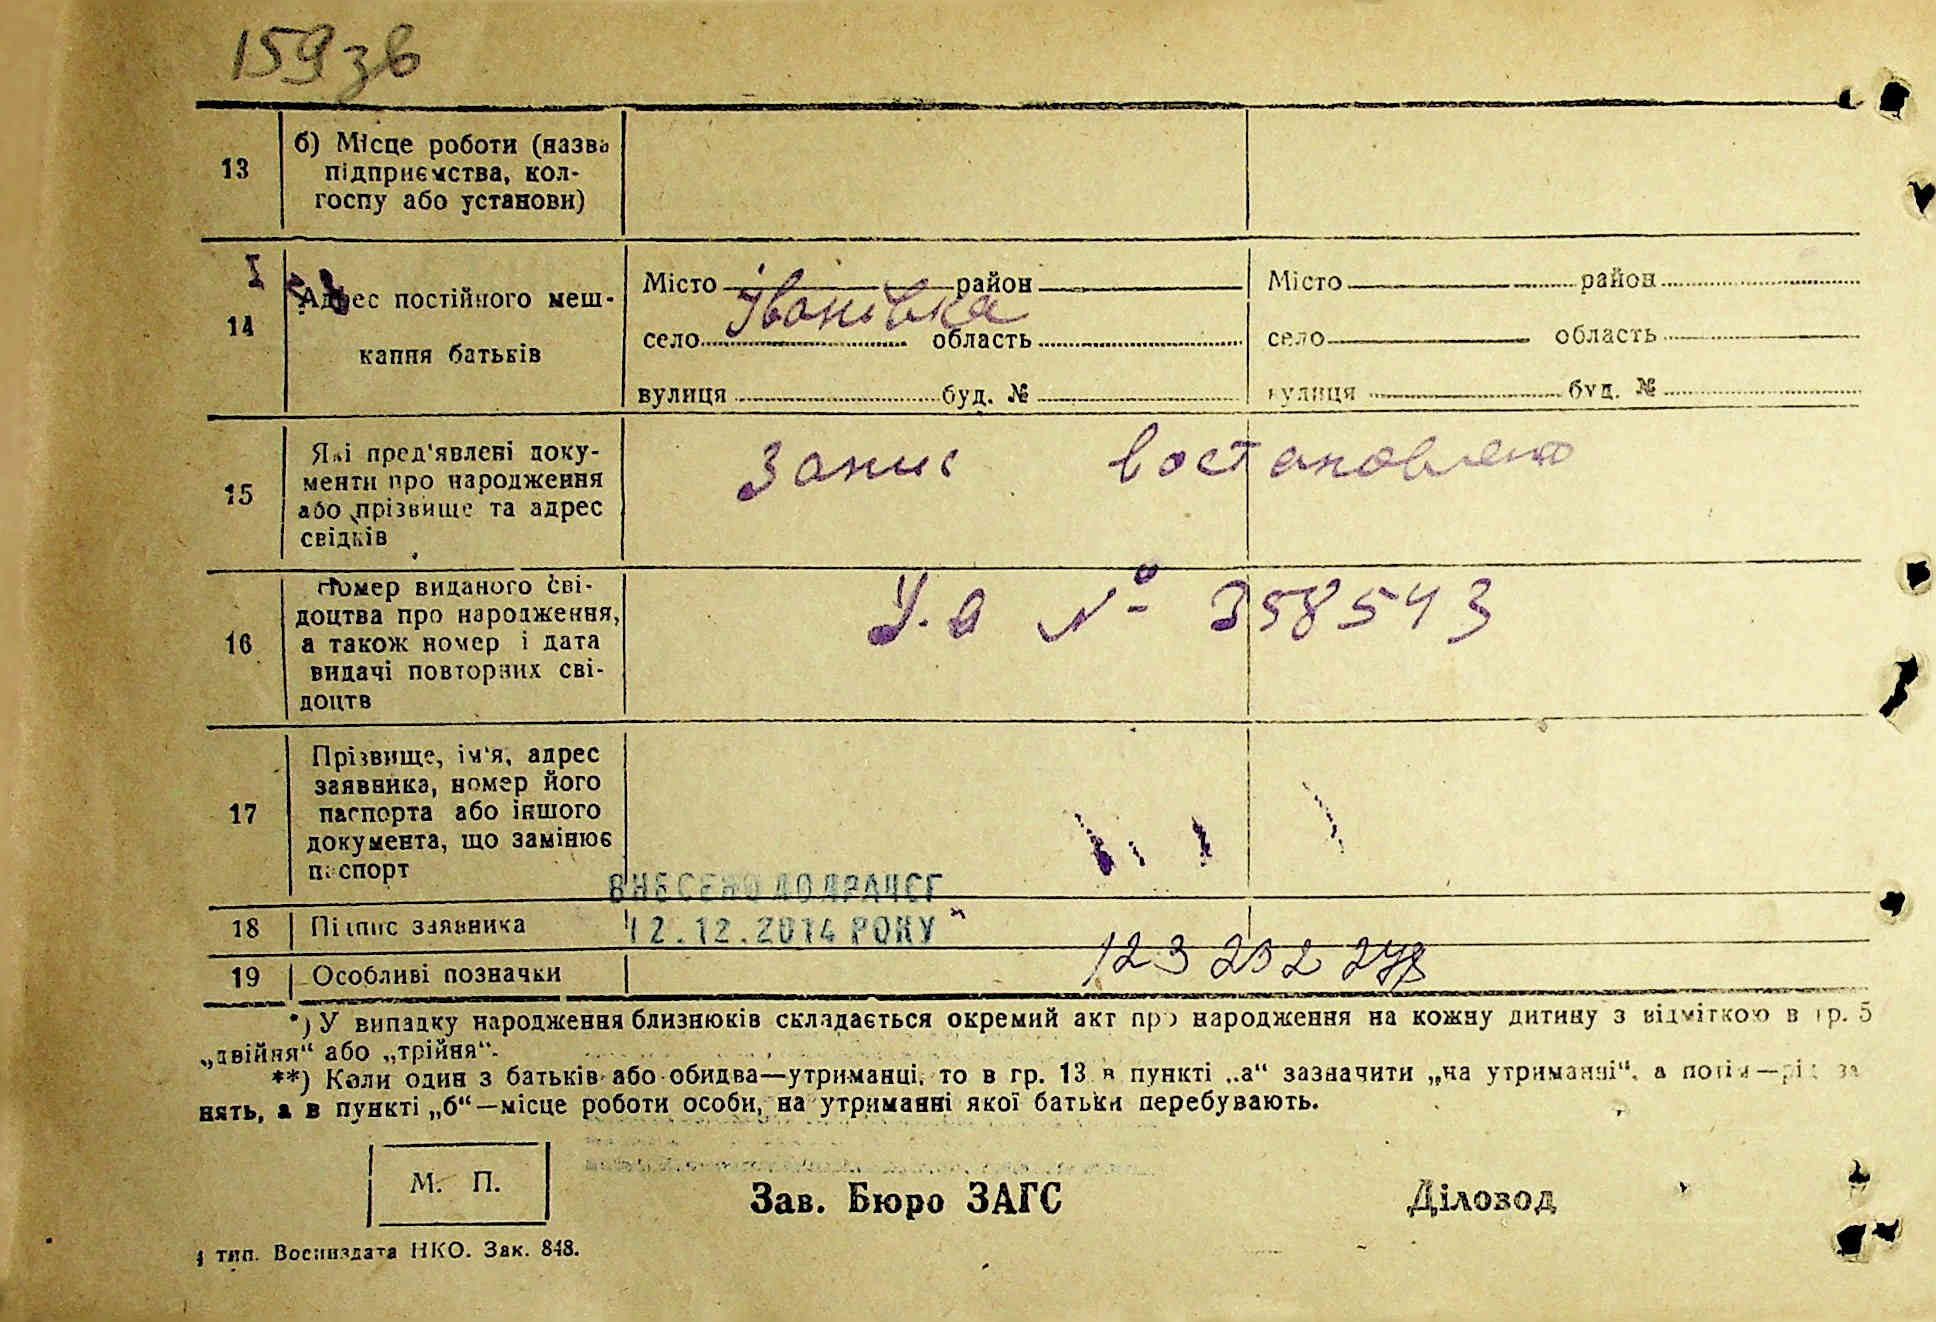 159 зв
13
б) Місце роботи (назва
підприємства, кол-
госпу або установи)
14
Адрес постійного меш-
кання батьків
Місто район
Іванівка
село область
вулиця буд. №
Місто район
село область
вулиця буд. №
15
Які пред'явлені доку-
менти про народження
або прізвище та адрес
свідків
Запис востановлено
16
Номер виданого сві-
доцтва про народження,
а також номер і дата
видачі повторних сві-
доцтв
№ 358543
17
Прізвище, ім'я, адрес
заявника, номер його
паспорта або іншого
документа, що замінює
паспорт
ВНЕСЕНО ДО ДРАЦСГ
12.12.2014 РОКУ
18
Підпис заявника
19
Особливі позначки
*) У випадку народження близнюків складається окремий акт про народження на кожну дитину з відміткою в гр. 5
„двійня“ або „трійня“.
**) Коли один з батьків або обидва—утриманці, то в гр. 13 в пункті „а“ зазначити „на утриманні“, а потім—рід за
нять, а в пункті „б“—місце роботи особи, на утриманні якої батьки перебувають.
М. П.
Зав. Бюро ЗАГС
Діловод
тип. Воениздата НКО. Зак. 848.